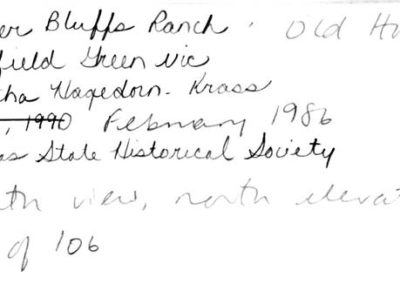 er Bluffs Ranch . Old Hu
field Green vic
tha Hagedorn-Krass
, 1990 February 1986
as State Historical Society
th view, north elevat
of 106